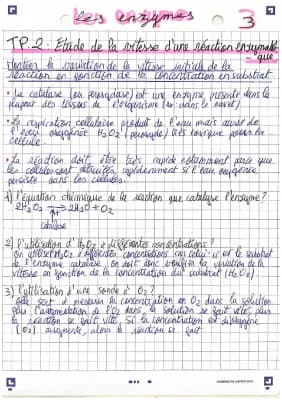 Les enzymes
3
TP.2 : Etude de la vitesse d'une réaction enzymatique
montrer la variation de la vitesse initiale de la
réaction en fonction de la concentration en substrat.
• La catalase (ou peroxydase) est un enzyme présente dans la
plupart des tissus de l'organisme (ici dans le navet).
• La respiration cellulaire produit de l'eau mais aussi de
l'eau oxygénée H2O2 (peroxyde) très toxique pour la
cellule.
• La réaction doit être très rapide notamment parce que
les cellules sont détruites rapidement si l'eau oxygénée
persiste dans les cellules.
1) l'équation chimique de la réaction que catalyse l'enzyme?
2H2O2 → 2H2O + O2
catalase
2) l'utilisation d'H2O2 à différentes concentrations?
On utilise H2O2 à différentes concentrations car celui-ci est le substrat
de l'enzyme catalase. On doit donc étudier la variation de la
vitesse en fonction de la concentration du substrat (H2O2).
3) l'utilisation d'une sonde à O2?
elle sert à mesurer la concentration en O2 dans la solution
plus l'augmentation de l'O2 dans la solution se fait vite, plus
la réaction se fait vite. Si la concentration en dioxygène
(O2) augmente, alors la réaction se fait